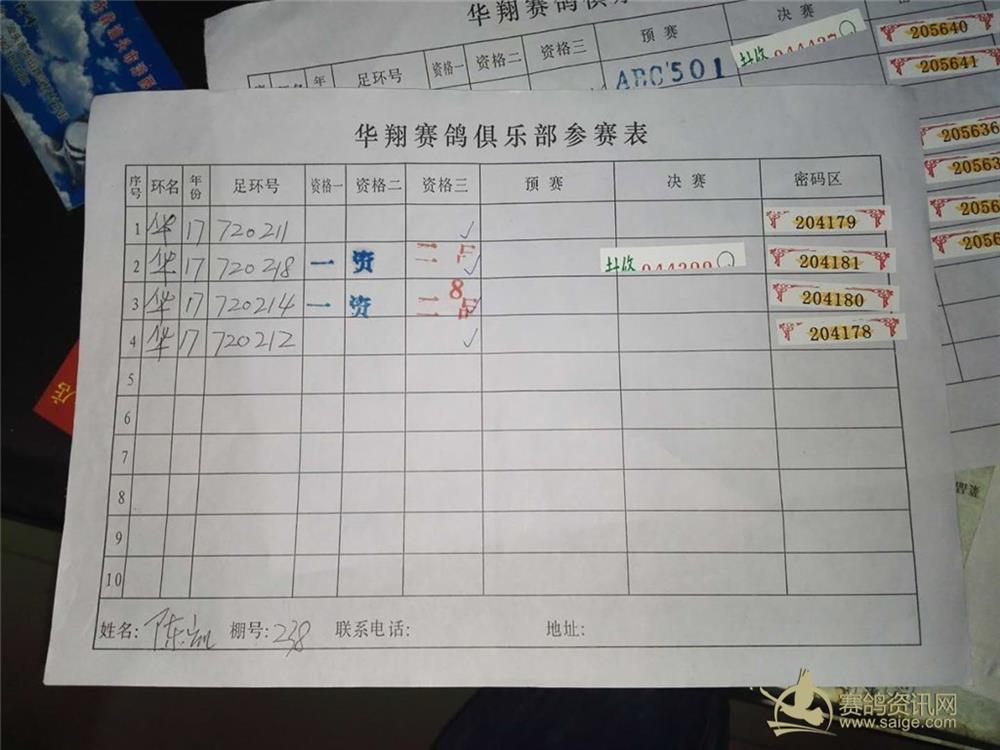 华翔赛鸽俱乐
年 足环号 资格一 资格二 资格三 预 赛 决 赛
ABC'501
205640
205641
205636
华翔赛鸽俱乐部参赛表
序号 环名 年份 足环号 资格一 资格二 资格三 预 赛 决 赛 密码区
1 华 17 720211 ✓ 204179
2 华 17 720218 一 资 ✓ 204181
3 华 17 720214 一 资 8 204180
4 华 17 720212 ✓ 204178
5
6
7
8
9
10
姓名: 棚号: 238 联系电话: 地址:
赛鸽资讯网
www.saige.com